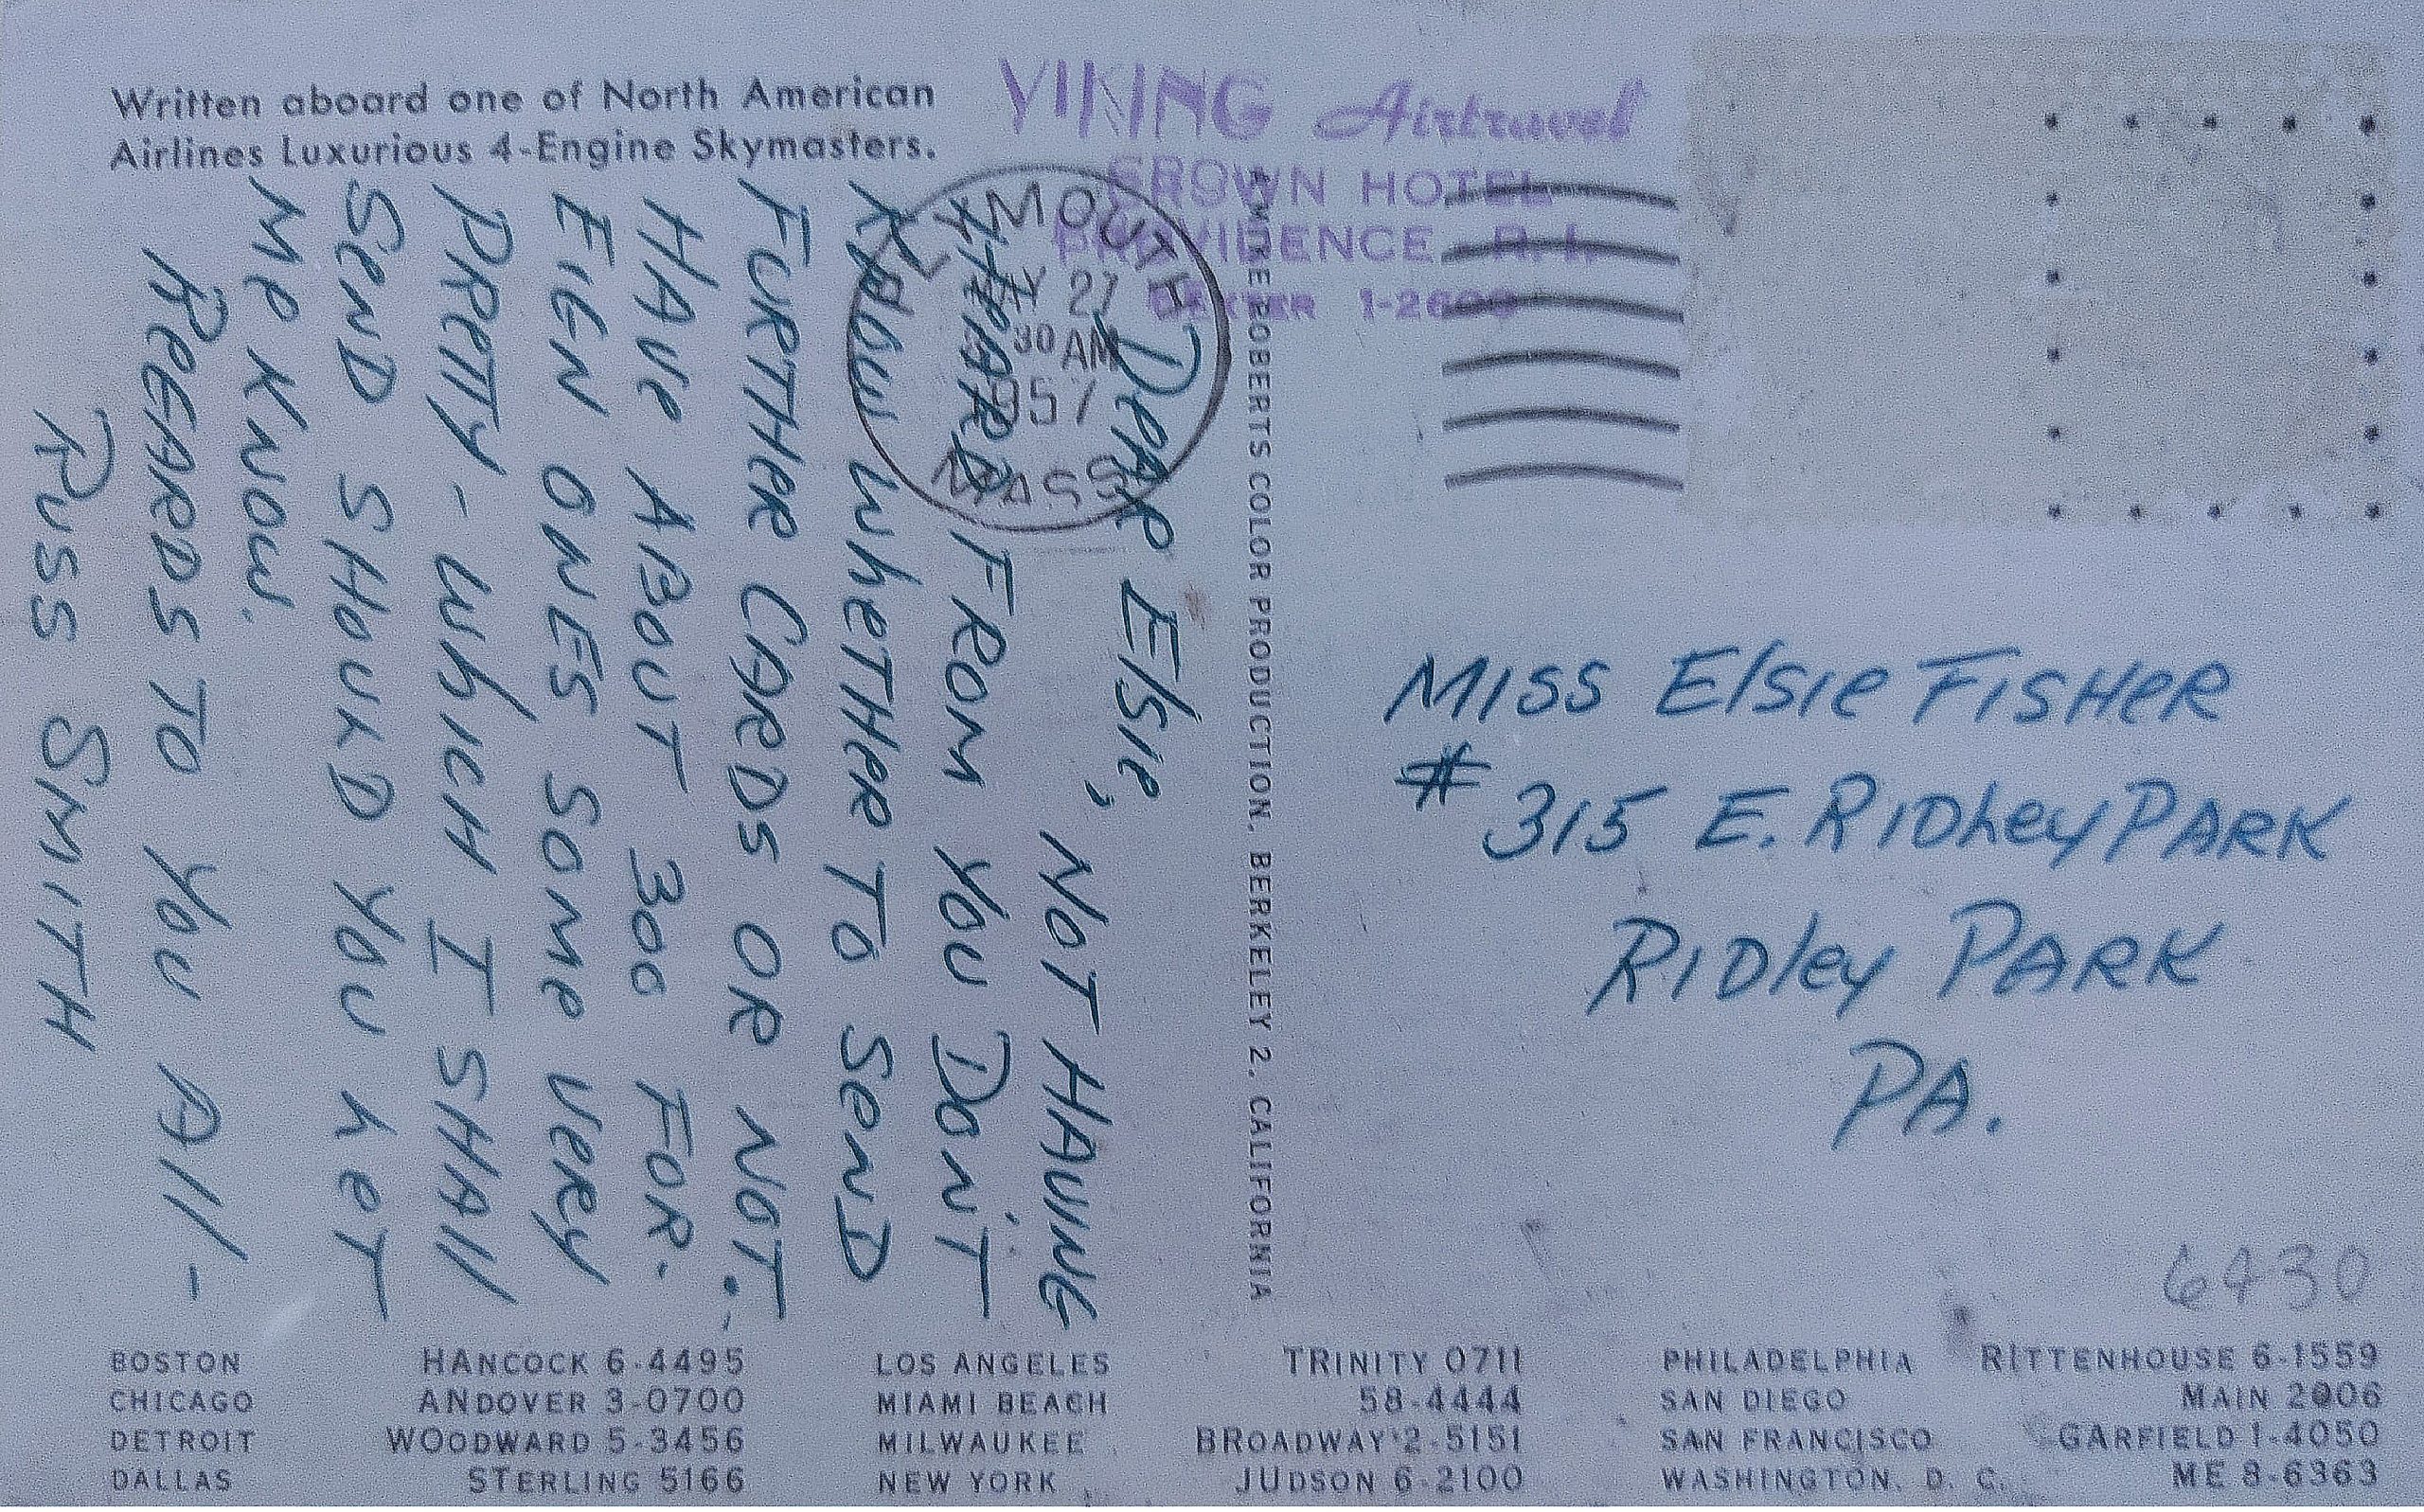 Written aboard one of North American
Airlines Luxurious 4-Engine Skymasters.
VIKING Airtravel
CROWN HOTEL
PROVIDENCE, R.I.
DEXTER 1-2600
MOUTH
27
30 AM
957
MASS
DEAR Elsie,
NOT HAVING
HEARD FROM YOU DON'T
KNOW WHETHER TO SEND
FURTHER CARDS OR NOT.
HAVE ABOUT 300 FOR-
EIGN ONES SOME VERY
PRETTY - WhICH I SHAll
SEND SHOULD YOU LET
ME KNOW.
REGARDS TO YOU All -
RUSS SMITH
A MIKE ROBERTS COLOR PRODUCTION, BERKELEY 2, CALIFORNIA
MISS ElSIE FISHER
# 315 E. RIDLEY PARK
RIDley PARK
PA.
6430
BOSTON HANCOCK 6-4495
CHICAGO ANDOVER 3-0700
DETROIT WOODWARD 5-3456
DALLAS STERLING 5166
LOS ANGELES TRINITY 0711
MIAMI BEACH 58-4444
MILWAUKEE BROADWAY 2-5151
NEW YORK JUDSON 6-2100
PHILADELPHIA RITTENHOUSE 6-1559
SAN DIEGO MAIN 2006
SAN FRANCISCO GARFIELD 1-4050
WASHINGTON, D. C. ME 8-6363